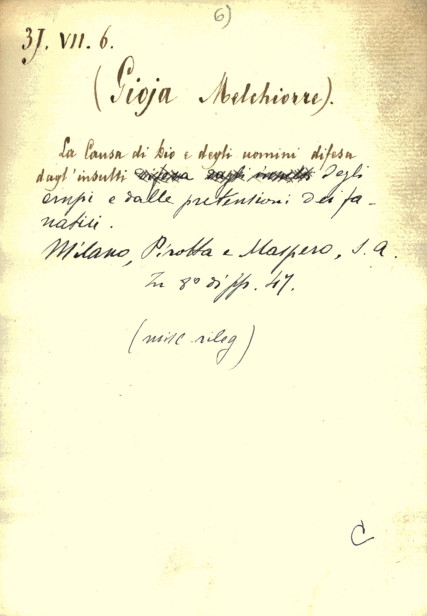 6)
3J. VII. 6.
(Gioja Melchiorre).
La Causa di Dio e degli uomini difesa
dagl'insulti difesa dagli insulti degli
empi e dalle pretensioni dei fa-
natici.
Milano, Pirotta e Maspero, s. a.
In 8° di pp. 47.
(misc. rileg)
C